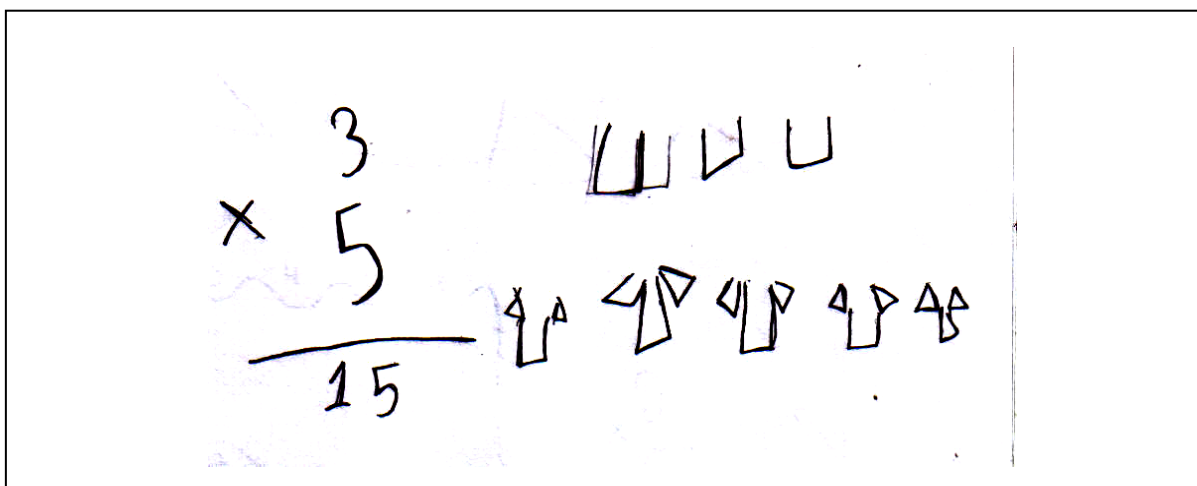 3
× 5
15